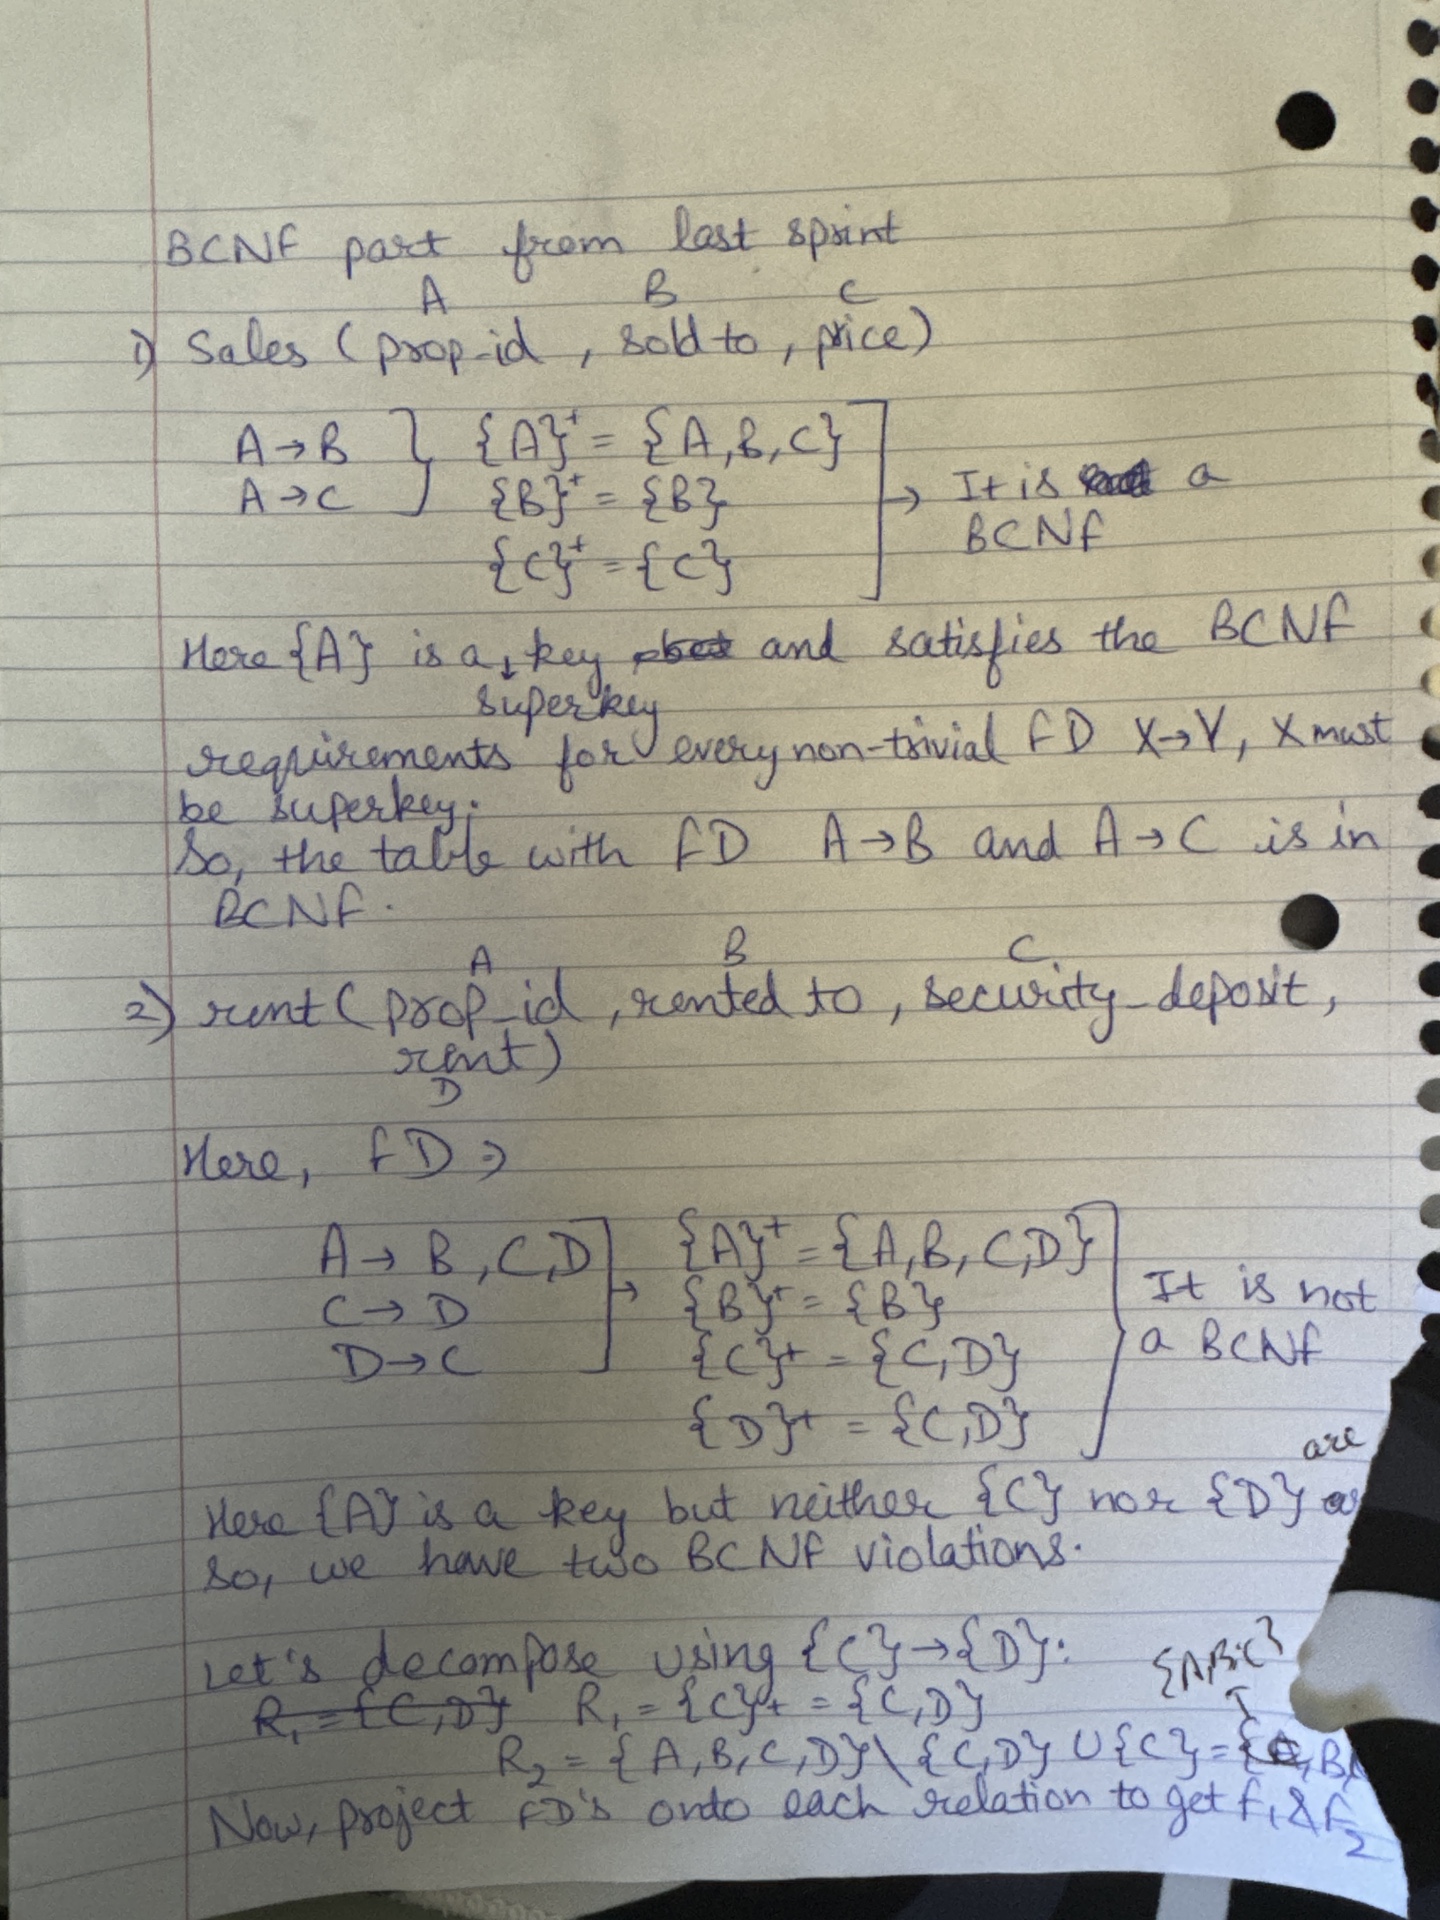 BCNF part from last sprint
A B C
1) Sales (prop-id, sold to, price)
A→B } {A}⁺ = {A,B,C}
A→C {B}⁺ = {B} → It is a
{C}⁺ = {C} BCNF
Here {A} is a key and satisfies the BCNF
superkey
requirements for every non-trivial FD X→Y, X must
be superkey.
So, the table with FD A→B and A→C is in
BCNF.
A B C
2) rent (prop_id, rented to, security_deposit,
rent)
D
Here, FD ⇒
A→ B, C, D → {A}⁺ = {A, B, C, D}
C→D {B}⁺ = {B} It is not
D→C {C}⁺ = {C, D} a BCNF
{D}⁺ = {C, D}
are
Here {A} is a key but neither {C} nor {D}
so, we have two BCNF violations.
Let's decompose using {C}→{D}:
{A,B,C}
R₁ = {C,D} R₁ = {C}⁺ = {C,D}
R₂ = {A, B, C, D} \ {C, D} U {C} =
Now, project FD's onto each relation to get F₁ & F₂